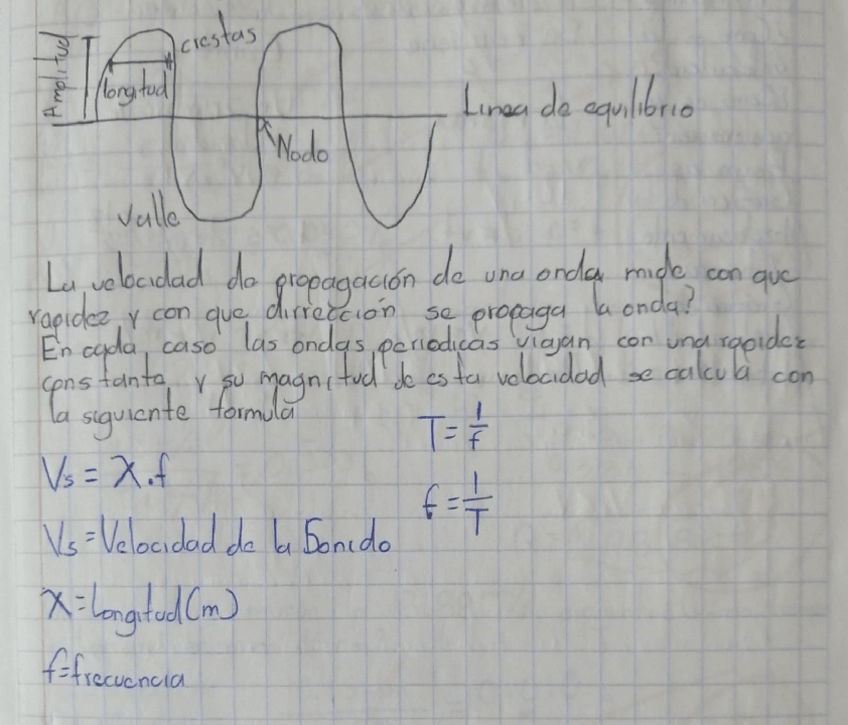 Amplitud
crestas
longitud
Linea de equilibrio
Nodo
Valle
La velocidad de propagación de una onda mide con que
rapidez y con que dirrección se propaga la onda?
En cada caso las ondas periodicas viajan con una rapidez
constante y su magnitud de esta velocidad se calcula con
la siguiente formula
T = 1/f
Vs = λ.f
f = 1/T
Vs = Velocidad de la Sonido
λ = Longitud (m)
f = frecuencia